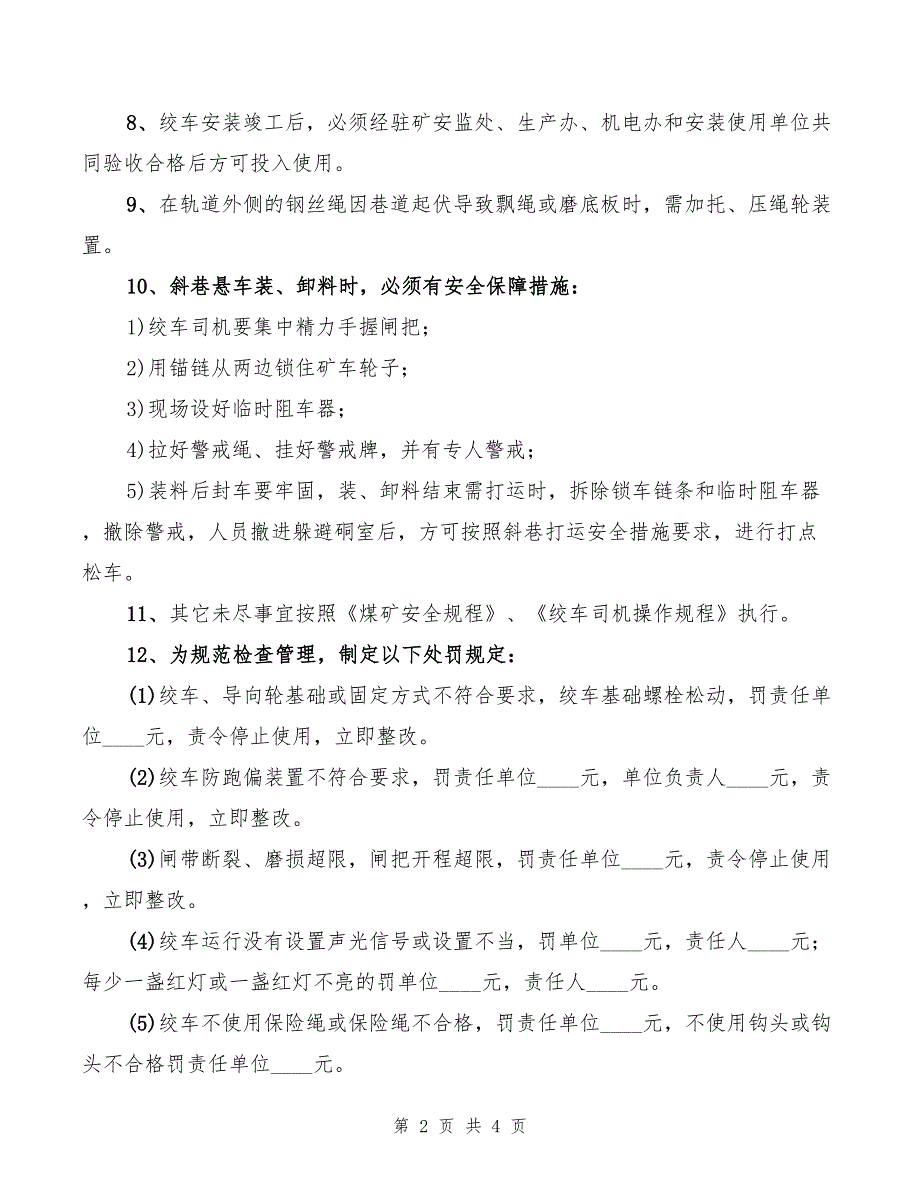 8、绞车安装竣工后，必须经驻矿安监处、生产办、机电办和安装使用单位共
同验收合格后方可投入使用。
9、在轨道外侧的钢丝绳因巷道起伏导致飘绳或磨底板时，需加托、压绳轮装
置。
10、斜巷悬车装、卸料时，必须有安全保障措施：
1)绞车司机要集中精力手握闸把；
2)用锚链从两边锁住矿车轮子；
3)现场设好临时阻车器；
4)拉好警戒绳、挂好警戒牌，并有专人警戒；
5)装料后封车要牢固，装、卸料结束需打运时，拆除锁车链条和临时阻车器
，撤除警戒，人员撤进躲避硐室后，方可按照斜巷打运安全措施要求，进行打点
松车。
11、其它未尽事宜按照《煤矿安全规程》、《绞车司机操作规程》执行。
12、为规范检查管理，制定以下处罚规定：
(1)绞车、导向轮基础或固定方式不符合要求，绞车基础螺栓松动，罚责任单
位____元，责令停止使用，立即整改。
(2)绞车防跑偏装置不符合要求，罚责任单位____元，单位负责人____元，责
令停止使用，立即整改。
(3)闸带断裂、磨损超限，闸把开程超限，罚责任单位____元，责令停止使用
，立即整改。
(4)绞车运行没有设置声光信号或设置不当，罚单位____元，责任人____元；
每少一盏红灯或一盏红灯不亮的罚单位____元，责任人____元。
(5)绞车不使用保险绳或保险绳不合格，罚责任单位____元，不使用钩头或钩
头不合格罚责任单位____元。
第 2 页 共 4 页